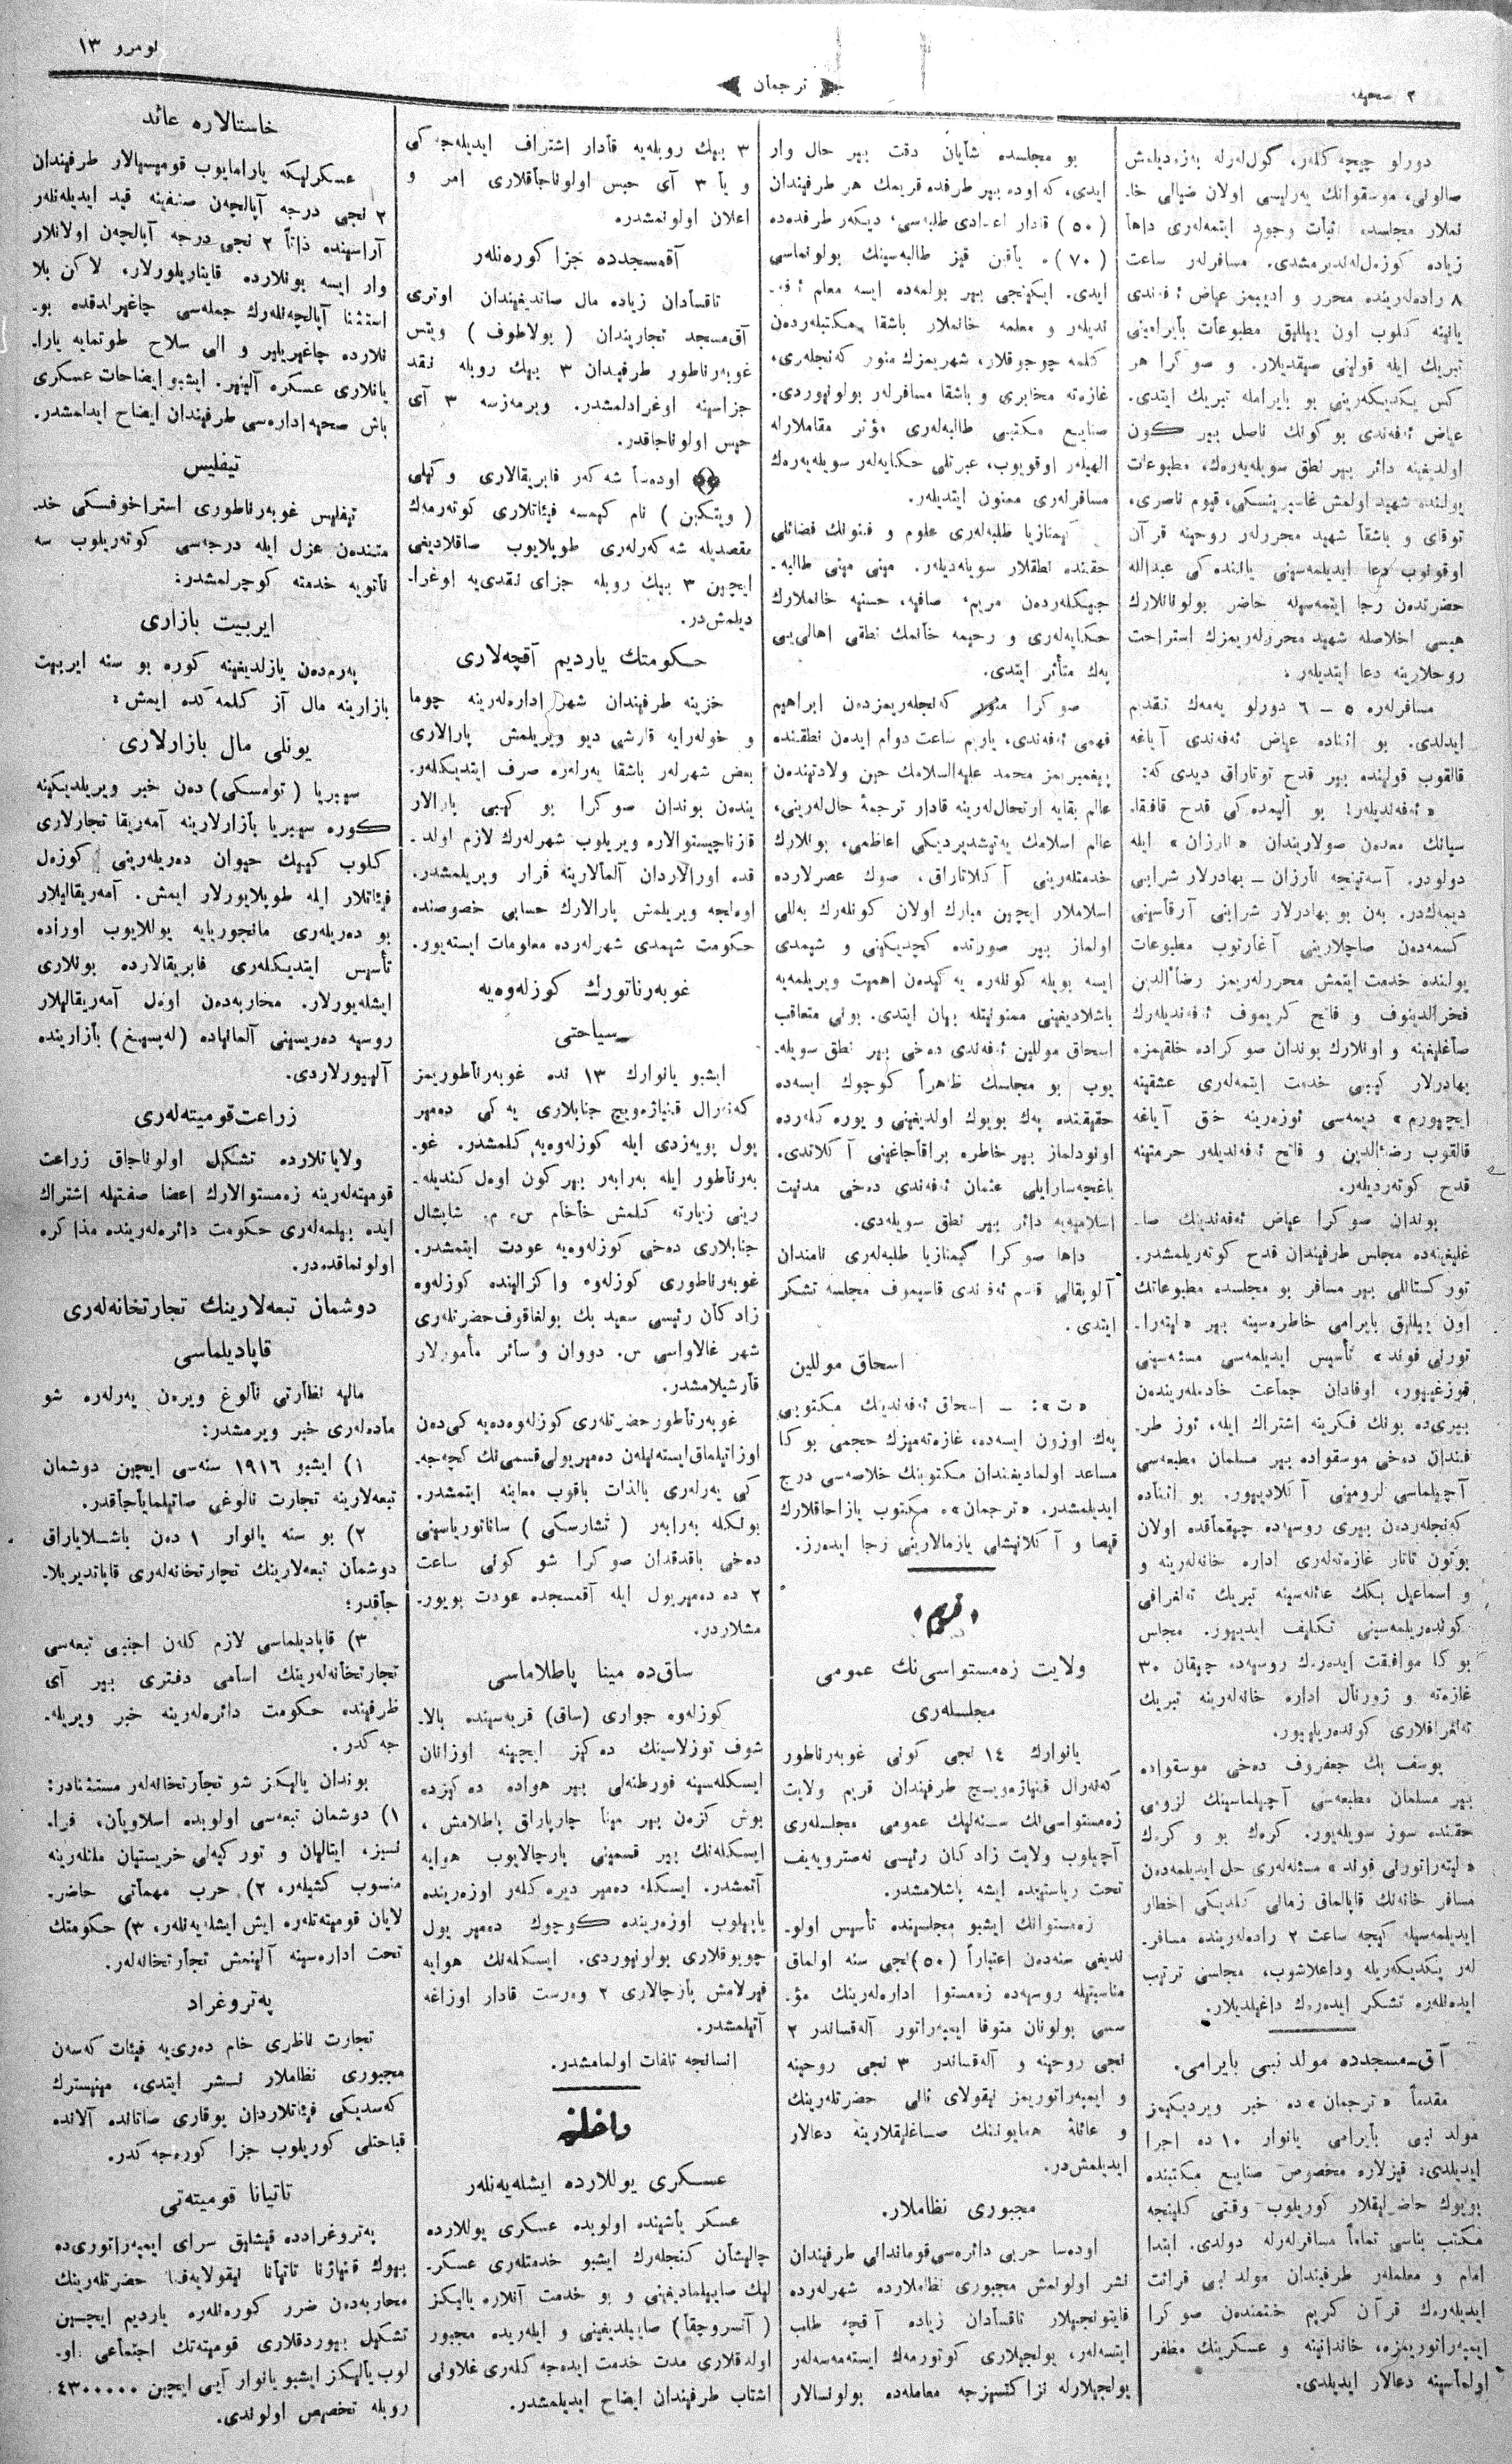 ۲ صحیفه
ترجمان
نومرو ۱۳
دورلو چیچه‌کلەر، گوللەرله بەزەدیلەش
صالونی، موسقوانك یەرلیسی اولان ضیالی خا-
نملار مجلسده اثبات وجود ایتمەلەری داها
زیاده کوزەل‌لەندیرمشدی. مسافرلەر ساعت
۸ رادەلەرینده محرر و ادیبمز عیاض ئەفندی
یانینه کلوب اون ییللیق مطبوعات بایرامینی
تبریك ایله قولینی صیقدیلار. و صوکرا هر
کس یکدیکەرینی بو بایرامله تبریك ایتدی.
عیاض ئەفەندی بو کونك ناصل بیر کون
اولدیغینه دائر بیر نطق سویلەیەرەك، مطبوعات
یولنده شهید اولمش غاسپرینسکی، قیوم ناصری،
توقای و باشقا شهید محررلەر روحینه قرآن
اوقونوب دعا ایدیلمەسینی یاننده‌کی عبدالله
حضرتدن رجا ایتمەسیله حاضر بولونانلارك
هیسی اخلاصله شهید محررلەریمزك استراحت
روحلارینه دعا ایتدیلەر.
مسافرلەره ۵ – ۶ دورلو یەمەك تقدیم
ایدلدی. بو اثناده عیاض ئەفەندی آیاغه
قالقوب قولینده بیر قدح توتاراق دیدی که:
«ئەفەندیلەر! بو ألیمده‌کی قدح قافقا-
سیانك معدن صولاریندان «نارزان» ایله
دولودر. آسەتینچه نارزان – بهادرلار شرابی
دیمەکدر. بەن بو بهادرلار شرابنی آرقاسینی
کسمەدن صاچلارینی آغارتوب مطبوعات
یولنده خدمت ایتمش محررلەریمز رضاءالدین
فخرالدینوف و فاتح کریموف ئەفەندیلەرك
صاغلیغینه و اونلارك بوندان صوکراده خلقیمزه
بهادرلار کیبی خدمت ایتمەلەری عشقینه
ایچیورم» دیمەسی ئوزەرینه خق آیاغه
قالقوب رضاءالدین و فاتح ئەفەندیلەر حرمتینه
قدح کوتەردیلەر.
بوندان صوکرا عیاض ئەفەندینك صا-
غلیغینه‌ده مجلس طرفیندان قدح کوتەریلمشدر.
تورکستانلی بیر مسافر بو مجلسده مطبوعاتك
اون ییللیق بایرامی خاطرەسینه بیر «لیتەرا-
تورنی فوند» تأسیس ایدیلمەسی مسئەسینی
قوزغیور، اوفادان جماعت خادملەریندەن
بیری‌ده بونك فکرینه اشتراك ایله، ئوز طر-
فندان دەخی موسقواده بیر مسلمان مطبعەسی
آچیلماسی لزومینی آکلادیور. بو اثناده
کەنجلەردن بیری روسیەده چیقمأقده اولان
بوتون تاتار غازەتەلەری اداره خانەلەرینه و
و اسماعیل بکك عائلەسینه تبریك تەلغرافی
کوندەریلمەسینی تکلیف ایدییور. مجلس
بوکا موافقت ایدەرك روسیەده چیقان ۳۰
غازەته و ژورنال اداره خانەلەرینه تبریك
تەلغرافلاری کوندەریلیور.
یوسف بك جعفروف دەخی موسقواده
بیر مسلمان مطبعەسی آچیلماسینك لزومی
حقنده سوز سویلەیور. کرەك بو و کرەك
«لیتەراتورنی فوند» مسئلەلەری حل ایدیلمەدن
مسافر خانەنك قاپالماق زمانی کلدیکی اخطار
ایدیلمەسیله کیجه ساعت ۲ رادەلەرینده مسافر-
لەر یکدیکەریله وداعلاشوب، مجلسی ترتیب
ایدەنلەره تشکر ایدەرەك داغیلدیلار.
آق-مسجدده مولد نبی بایرامی.
مقدماً «ترجمان»ده خبر ویردیکیمز
مولد نبی بأیرامی یانوار ۱۰ ده اجرا
ایدیلدی: قیزلاره مخصوص صنایع مکتبنده
بویوك حاضرلیقلار کوریلوب وقتی کلینجه
مکتب بناسی تماماً مسافرلەرله دولدی. ابتدا
امام و معلملەر طرفیندان مولد نبی قرائت
ایدیلەرەك قرآن کریم ختمندەن صوکرا
ایمپەراتوریمزه، خاندانینه و عسکرینك مظفر
اولماسینه دعالار ایدیلدی.
بو مجلسده شأیان دقت بیر حال وار
ایدی، که اوده بیر طرفده قریمك هر طرفیندان
(۵۰) قادار اعدادی طلبەسی، دیکەر طرفده‌ده
(۷۰)ه یاقین قیز طالبەسینك بولونماسی
ایدی. ایکینجی بیر بولمەده ایسه معلم ئەفە-
ندیلەر و معلمه خانملار باشقا مکتبلەردن
کلمه چوجوقلار، شهریمزك منور کەنجلەری،
غازەته مخابری و باشقا مسافرلەر بولونیوردی.
صنایع مکتبی طالبەلەری مؤثر مقاملارله
الهیلەر اوقویوب، عبرتلی حکایەلەر سویلەیەرەك
مسافرلەری ممنون ایتدیلەر.
گیمنازیا طلبەلەری علوم و فنونك فضائلی
حقنده نطقلار سویلەدیلەر. مینی مینی طالبه-
جیکلەردەن مریم، صافیه، حسنیه خانملارك
حکایەلەری و رحیمه خأنمك نطقی اهالی‌یی
پەك متأثر ایتدی.
صوکرا منور کەنجلەریمزدن ابراهیم
فهمی ئەفەندی، یاریم ساعت دوام ایدەن نطقنده
پیغمبریمز محمد علیه‌السلامك حین ولادتیندەن
عالم بقایه ارتحال‌لەرینه قادار ترجمهٔ حال‌لەرینی،
عالم اسلامك یەتیشدیردیکی اعاظمی، بونلارك
خدمتلەرینی آکلاتاراق، صوك عصرلارده
اسلاملار ایچین مبارك اولان کونلەرك بەللی
اولماز بیر صورتده کچدیکینی و شیمدی
ایسه بویله کونلەره یەکیدەن اهمیت ویریلمەیه
باشلادیغینی ممنونیتله بیان ایتدی. بونی متعاقب
اسحاق موللین ئەفەندی دەخی بیر نطق سویله-
یوب بو مجلسك ظاهراً کوچوك ایسەده
حقیقتنده پەك بویوك اولدیغینی و یورەکلەرده
اونودلماز بیر خاطره براقأجاغینی آکلاتدی.
باغچه‌سارایلی عثمان ئەفەندی دەخی مدنیت
اسلامیەیه دائر بیر نطق سویلەدی.
داها صوکرا گیمنازیا طلبەلەری نامندان
آلوبقالی قاسم ئەفەندی قاسیموف مجلسه تشکر
ایتدی.
اسحاق موللین
«ت»: – اسحاق ئەفەندینك مکتوبی
پەك اوزون ایسەده، غازەتەمیزك حجمی بوکا
مساعد اولمادیغندان مکتوبنك خلاصەسی درج
ایدیلمشدر. «ترجمان»ه مکتوب یازاجاقلارك
قیصا و آکلانیشلی یازمالارینی رجا ایدەرز.
قریم
ولایت زەمستواسی‌نك عمومی
مجلسلەری
یانوارك ۱۴ نجی کونی غوبەرناطور
کەنەرال قنیازەویچ طرفیندان قریم ولایت
زەمستواسی‌نك سنەلیك عمومی مجلسلەری
آچیلوب ولایت زادکان رئیسی نەصترویەیف
تحت ریاستینده ایشه باشلامشدر.
زەمستوانك ایشبو مجلسینده تأسیس اولو-
ندیغی سنەدەن اعتباراً (۵۰)نجی سنه اولماق
مناسبتیله روسیەده زەمستوا ادارەلەرینك مؤ-
سسی بولونان متوفا ایمپەراتور آلەقساندر ۲
نجی روحینه و آلەقساندر ۳ نجی روحینه
و ایمپەراتوریمز نیقولای ثانی حضرتلەرینك
و عائلهٔ همایوننك صاغلیقلارینه دعالار
ایدیلمش‌در.
مجبوری نظاملار.
اودەسا حربی دائرەسی قوماندانی طرفیندان
نشر اولونمش مجبوری نظاملارده شهرلەرده
فایتونجیلار تاقسأدان زیاده آقچه طلب
ایتسەلەر، یولجیلاری کوتورمەك ایستەمەسەلەر
یولجیلارله نزاکتسیزجه معاملەده بولونسالار
۳ بیك روبلەیه قأدار اشتراف ایدیلەجەکی
و یا ۳ آی حبس اولوناجأقلاری امر و
اعلان اولونمشدره
آقمسجدده جزا کورەنلەر
تاقسأدان زیاده مال صاتدیغیندان اوتری
آق‌مسجد تجاریندان (بولاطوف) ویتس
غوبەرناطور طرفیدان ۳ بیك روبله نقد
جزاسینه اوغرادلمشدر. ویرمەزسه ۳ آی
حبس اولوناجاقدر.
اودەسأ شەکەر فابریقالاری وکیلی
(ویتکین) نام کیمسه فیئاتلاری کوتەرمەك
مقصدیله شەکەرلەری طوپلایوب صاقلادیغی
ایچین ۳ بیك روبله جزای نقدی‌یه اوغرا-
دیلمش‌در.
حکومتك یاردیم آقچەلاری
خزینه طرفیندان شهر ادارەلەرینه چوما
و خولەرایه قارشی دیو ویریلمش پارالاری
بعض شهرلەر باشقا یەرلەره صرف ایتدیکلەر-
یندەن بوندان صوکرا بو کیبی پارالار
قازناچیستوالاره ویریلوب شهرلەرك لازم اولد-
قده اورالاردان آلمألارینه قرار ویریلمشدر.
اوەلجه ویریلمش پارالارك حسابی خصوصنده
حکومت شیمدی شهرلەرده معلومات ایستەیور.
غوبەرناتورك کوزلەوەیه
سیاحتی
ایشبو یانوارك ۱۳ نده غوبەرنأطوریمز
کەنەرال قنیازەویچ جنابلاری یەکی دەمیر
یول پویەزدی ایله کوزلەوەیه کلمشدر. غو-
بەرناطور ایله بەرابەر بیر کون اوەل کندیله-
رینی زیارته کلمش خاخام س. م. شاپشال
جنابلاری دەخی کوزلەوەیه عودت ایتمشدر.
غوبەرناطوری کوزلەوه واکزالینده کوزلەوه
زادکأن رئیسی سعید بك بولغاقوف حضرتلەری
شهر غالاواسی س. دووان و سائر مأمورلار
قأرشیلامشدر.
غوبەرنأطور حضرتلەری کوزلەوەده‌یەکی‌دەن
اوزاتیلماق‌ایستەنیلەن دەمیریولی قسمی‌نك کچەجە-
کی یەرلەری بالذات باقوب معاینه ایتمشدر.
بونکله بەرابەر (تسارسکی) ساناتوریاسینی
دەخی باقدقدان صوکرا شو کونی ساعت
۲ ده دەمیریول ایله آقمسجده عودت بویور-
مشلاردر.
ساق‌ده مینا پاطلاماسی
کوزلەوه جواری (ساق) قریەسینده بالا-
شوف توزلاسینك دەکیز ایچینه اوزانان
ایسکلەسینه فورطنەلی بیر هواده دەکیزده
بوش کزەن بیر مینا چارپاراق پاطلامش،
ایسکلەنك بیر قسمینی پارچالایوب هوایه
آتمشدر. ایسکله دەمیر دیرەکلەر اوزەرینده
یاپیلوب اوزەرینده کوچوك دەمیر یول
چوبوقلاری بولونیوردی. ایسکلەنك هوایه
فیرلامش پارچالاری ۲ وەرست قادار اوزاغه
آتیلمشدر.
انسانجه تلفات اولمامشدر.
داخلیه
عسکری یوللارده ایشلەیەنلەر
عسکر یأشینده اولوبده عسکری یوللارده
چالیشأن کنجلەرك ایشبو خدمتلەری عسکر-
لیك صاییلمادیغینی و بو خدمت آنلاره یالیکز
(آتسروچقأ) صاییلدیغینی و ایلەریده مجبور
اولدقلاری مدت خدمت ایدەجەکلەری غلاونی
اشتاب طرفیندان ایضاح ایدیلمشدر.
خاستالاره عائد
عسکرلیکه یارامایوب قومیسیالار طرفیندان
۲ نجی درجه آپالچەن صنفینه قید ایدیلەنلەر
آراسینده ذاتاً ۲ نجی درجه آپالچەن اولانلار
وار ایسه بونلارده قایتاریلورلار، لاکن بلا
استثنا آپالچەنلەرك جملەسی چاغیرلدقده بو-
نلارده چاغیریلیر و الی سلاح طوتمایه یارا-
یانلاری عسکره آلینیر. ایشبو ایضاحات عسکری
باش صحیه ادارەسی طرفیندان ایضاح ایدلمشدر.
تیفلیس
تیفلیس غوبەرناطوری استراخوفسکی خد-
متندەن عزل ایله درجەسی کوتەریلوب سه
نأتویه خدمته کوچرلمشدر.
ایربیت بازاری
پەرمدەن یازلدیغینه کوره بو سنه ایربیت
بازارینه مال آز کلمەکده ایمش.
یونلی مال بازارلاری
سیبریا (تومسکی) دەن خبر ویریلدیکینه
کوره سیبریا بأزارلارینه آمەریقا تجارلاری
کلوب کیییك حیوان دەریلەرینی کوزەل
فیئاتلار ایله طوپلایورلار ایمش. آمەریقالیلار
بو دەریلەری مانجوریایه یوللایوب اوراده
تأسیس ایتدیکلەری فابریقالارده بونلاری
ایشلەیورلار. محاربەدەن اوەل آمەریقالیلار
روسیه دەریسینی آلمانیاده (لەیپسیغ) بأزارینده
آلییورلاردی.
زراعت‌قومیتەلەری
ولایاتلارده تشکیل اولوناجاق زراعت
قومیتەلەرینه زەمستوالارك اعضا صفتیله اشتراك
ایده بیلمەلەری حکومت دائرەلەرینده مذاکره
اولونماقدەدر.
دوشمان تبعەلارینك تجارتخانەلەری
قاپادیلماسی
مالیه نظارتی نألوغ ویرەن یەرلەره شو
مادەلەری خبر ویرمشدر:
۱) ایشبو ۱۹۱۶ سنەسی ایچین دوشمان
تبعەلارینه تجارت نالوغی صاتیلمایأجأقدر.
۲) بو سنه یانوار ۱ دەن باشلایاراق
دوشمأن تبعەلارینك تجارتخانەلەری قاپاتدیریلا-
جأقدر؛
۳) قاپادیلماسی لازم کلەن اجنبی تبعەسی
تجارتخانەلەرینك اسامی دفتری بیر آی
ظرفینده حکومت دائرەلەرینه خبر ویریله-
جەکدر.
بوندان یالیکز شو تجارتخانەلەر مستثنادر:
۱) دوشمان تبعەسی اولوبده اسلاویأن، فرا-
نسیز، ایتالیان و تورکیەلی خریستیان ملتلەرینه
منسوب کشیلەر، ۲) حرب مهمأتی حاضر-
لایان قومیتەتلەره ایش ایشلەیەنلەر، ۳) حکومتك
تحت ادارەسینه آلینمش تجارتخانەلەر.
پەتروغراد
تجارت ناظری خام دەری‌یه فیئات کەسەن
مجبوری نظاملار نشر ایتدی، مینیسترك
کەسدیکی فیئاتلاردان یوقاری صاتانده آلانده
قباحتلی کوریلوب جزا کورەجەکدر.
تاتیانا قومیتەتی
پەتروغرادده قیشلیق سرای ایمپەراتوری‌ده
بیوك قنیاژنا تاتیأنا نیقولایەفنا حضرتلەرینك
محاربەدەن ضرر کورەنلەره یاردیم ایچین
تشکیل بیوردقلاری قومیتەتك اجتماعی او-
لوب یألیکز ایشبو یانوار آیی ایچین ٤٣٠٠٠٠٠
روبله تخصیص اولوندی.